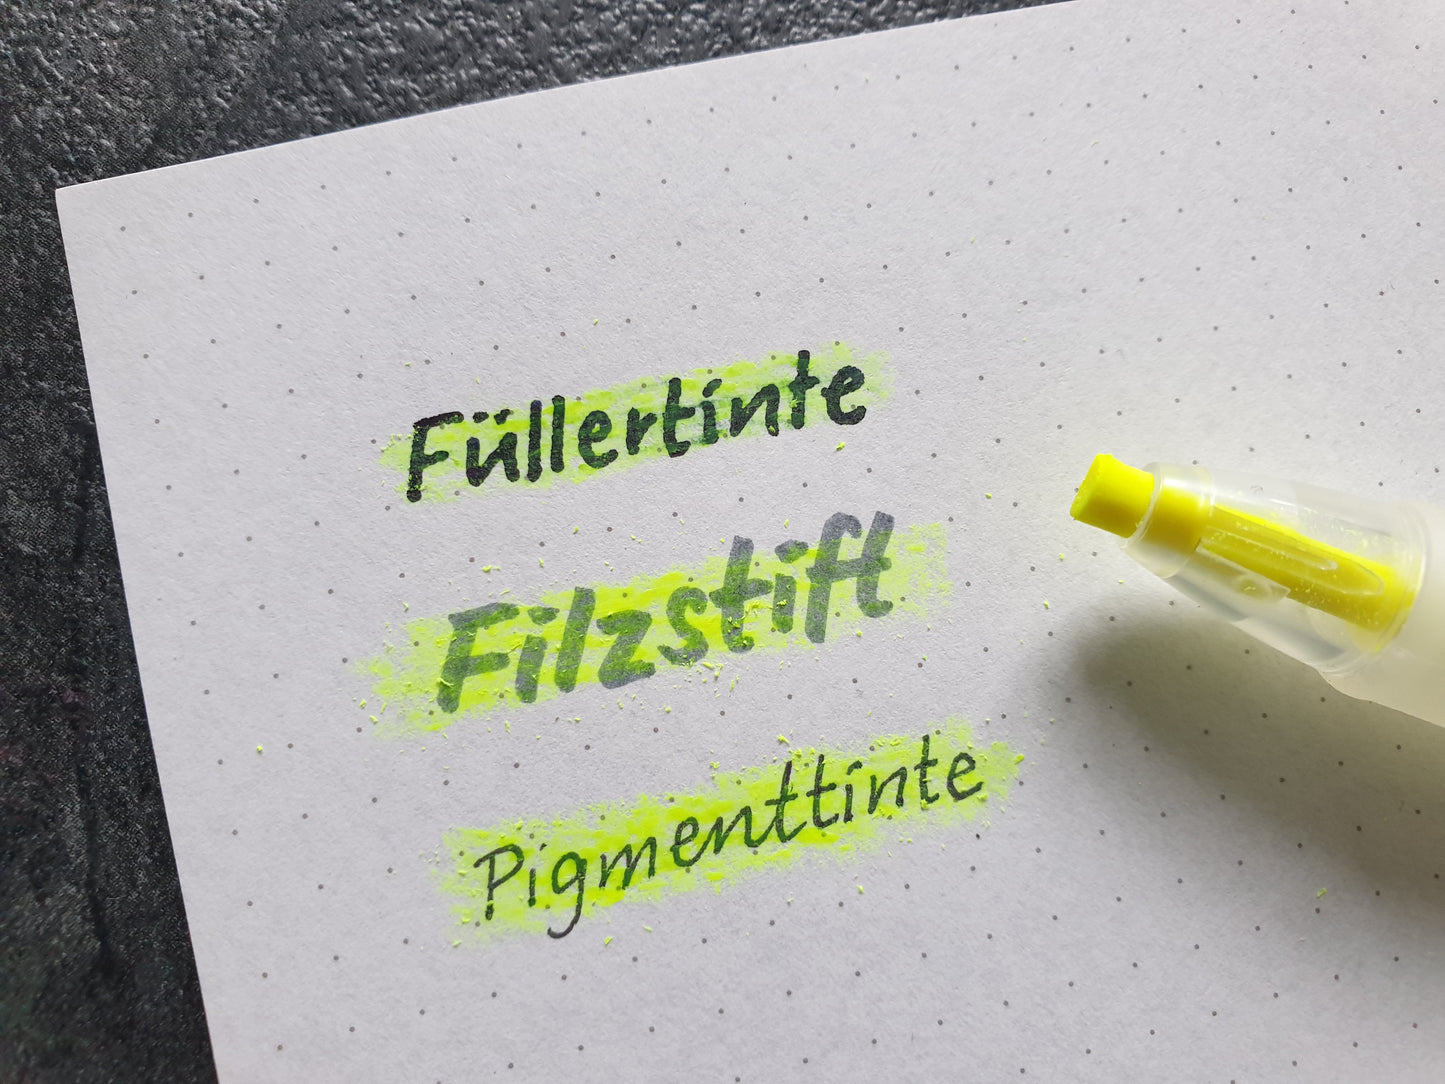 Füllertinte
Filzstift
Pigmenttinte